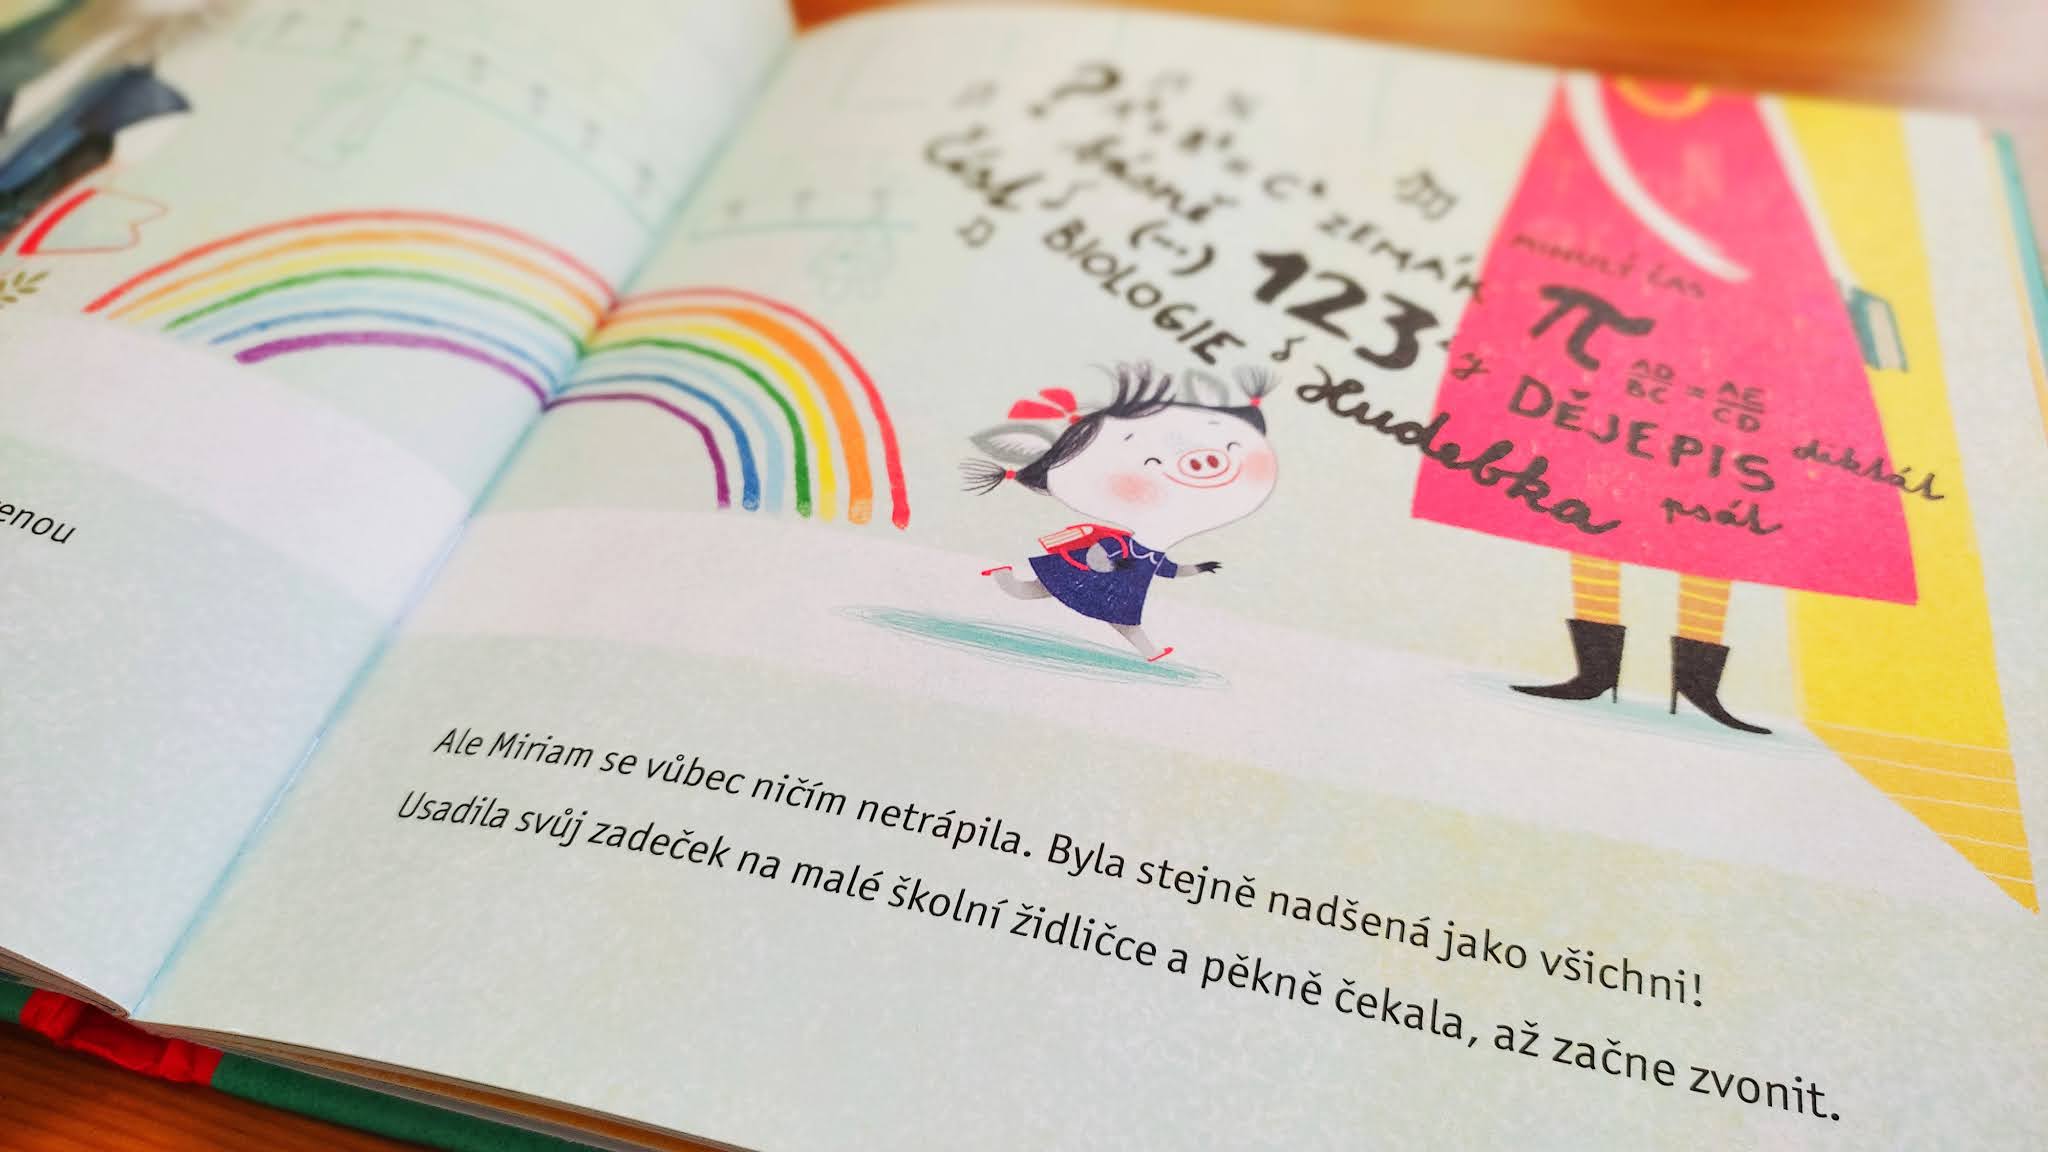 enou
?
básně
část
(-·)
ZEMÁK
BIOLOGIE
123
MINULÝ ČAS
π
AD/BC = AE/CD
y
DĚJEPIS
diktát
Hudebka
psát
Ale Miriam se vůbec ničím netrápila. Byla stejně nadšená jako všichni!
Usadila svůj zadeček na malé školní židličce a pěkně čekala, až začne zvonit.